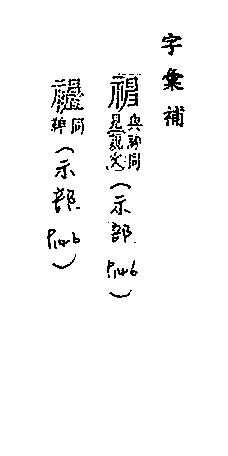 字彙補
與神同
見說文(示部 P.146)
同
(示部 P.146)